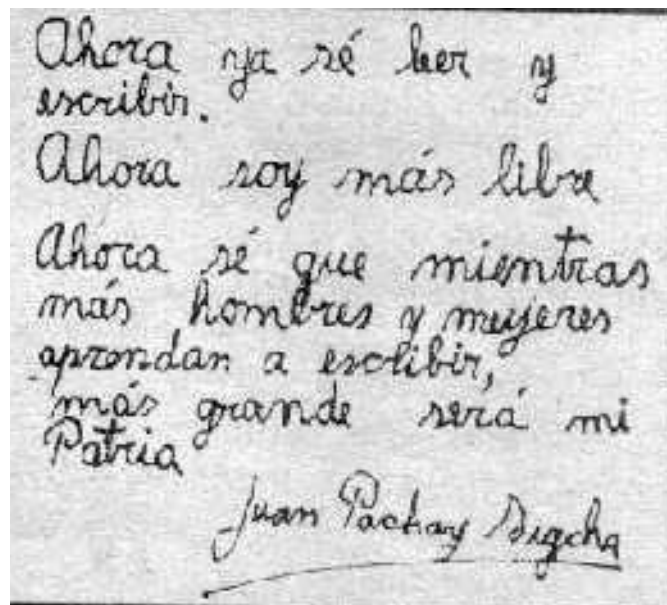 Ahora ya sé leer y
escribir.
Ahora soy más libre
Ahora sé que mientras
más hombres y mujeres
aprendan a esclibir,
más grande será mi
Patria
Juan Pachay Sigcha